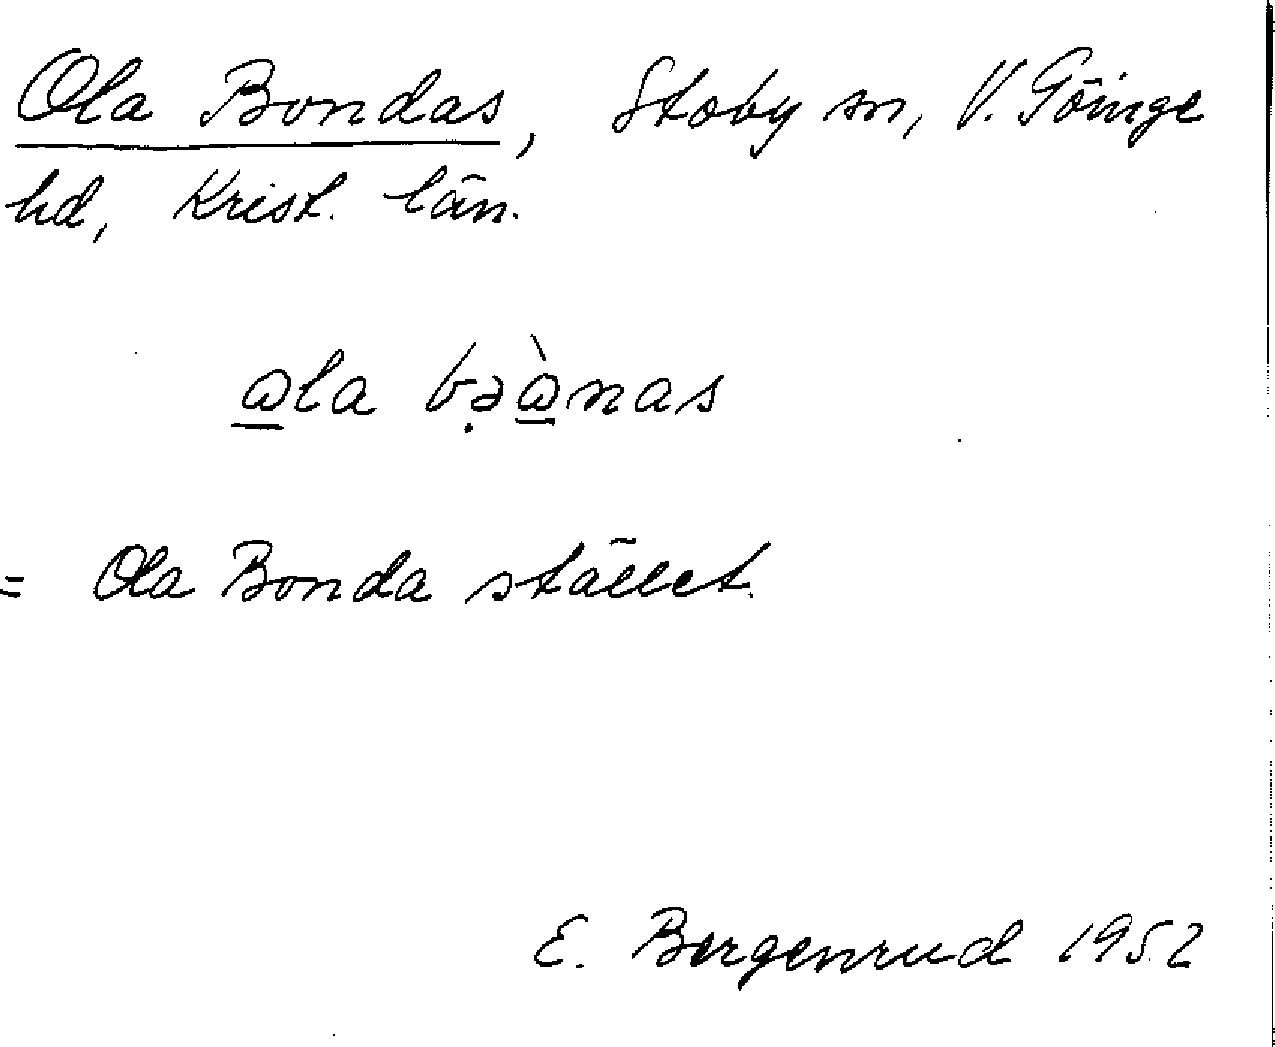 Ola Bondas, Stoby sn, V. Göinge
hd, Krist. län.
ala bəànas
= Ola Bonda stället.
E. Bergenrud 1952